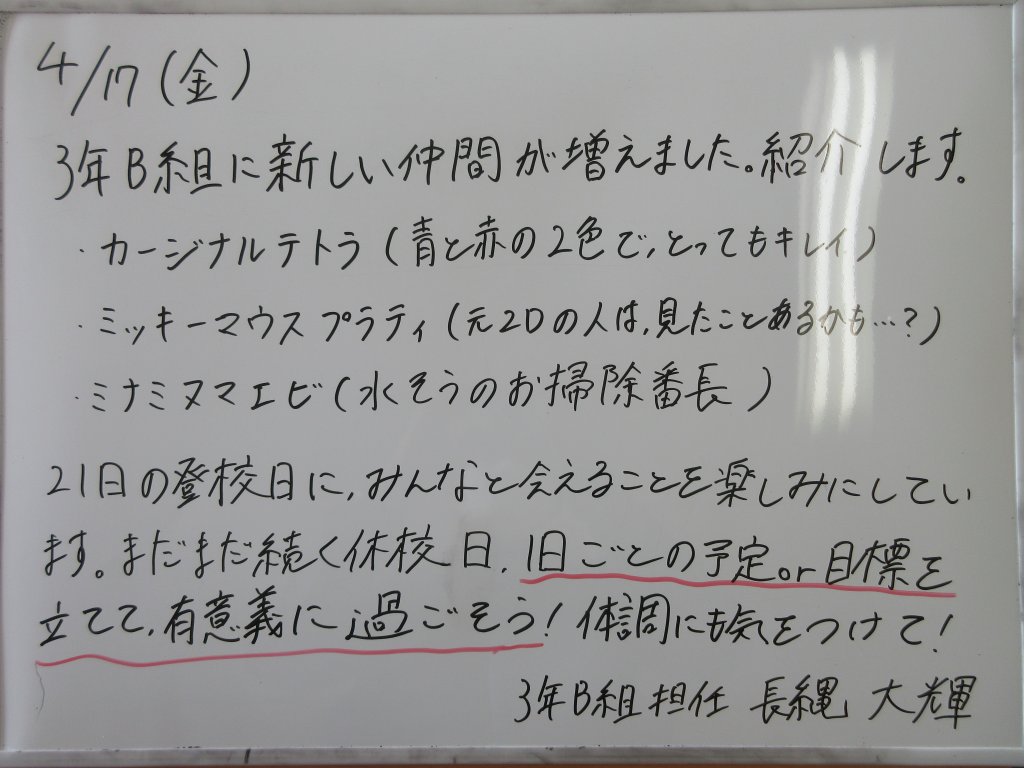 4/17(金)
3年B組に新しい仲間が増えました。紹介します。
・カージナルテトラ(青と赤の2色で,とってもキレイ)
・ミッキーマウスプラティ(元2Dの人は,見たことあるかも…?)
・ミナミヌマエビ(水そうのお掃除番長)
21日の登校日に,みんなと会えることを楽しみにしてい
ます。まだまだ続く休校日,1日ごとの予定or目標を
立てて,有意義に過ごそう!体調にも気をつけて!
3年B組担任 長縄 大輝